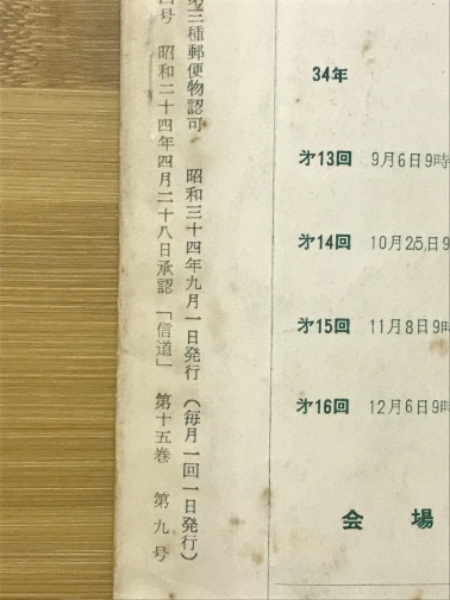 34年
才13回 9月6日9時
才14回 10月25日9
才15回 11月8日9時
才16回 12月6日9時
会場
第三種郵便物認可 昭和三十四年九月一日発行(毎月一回一日発行)
号 昭和二十四年四月二十八日承認「信道」 第十五巻 第九号